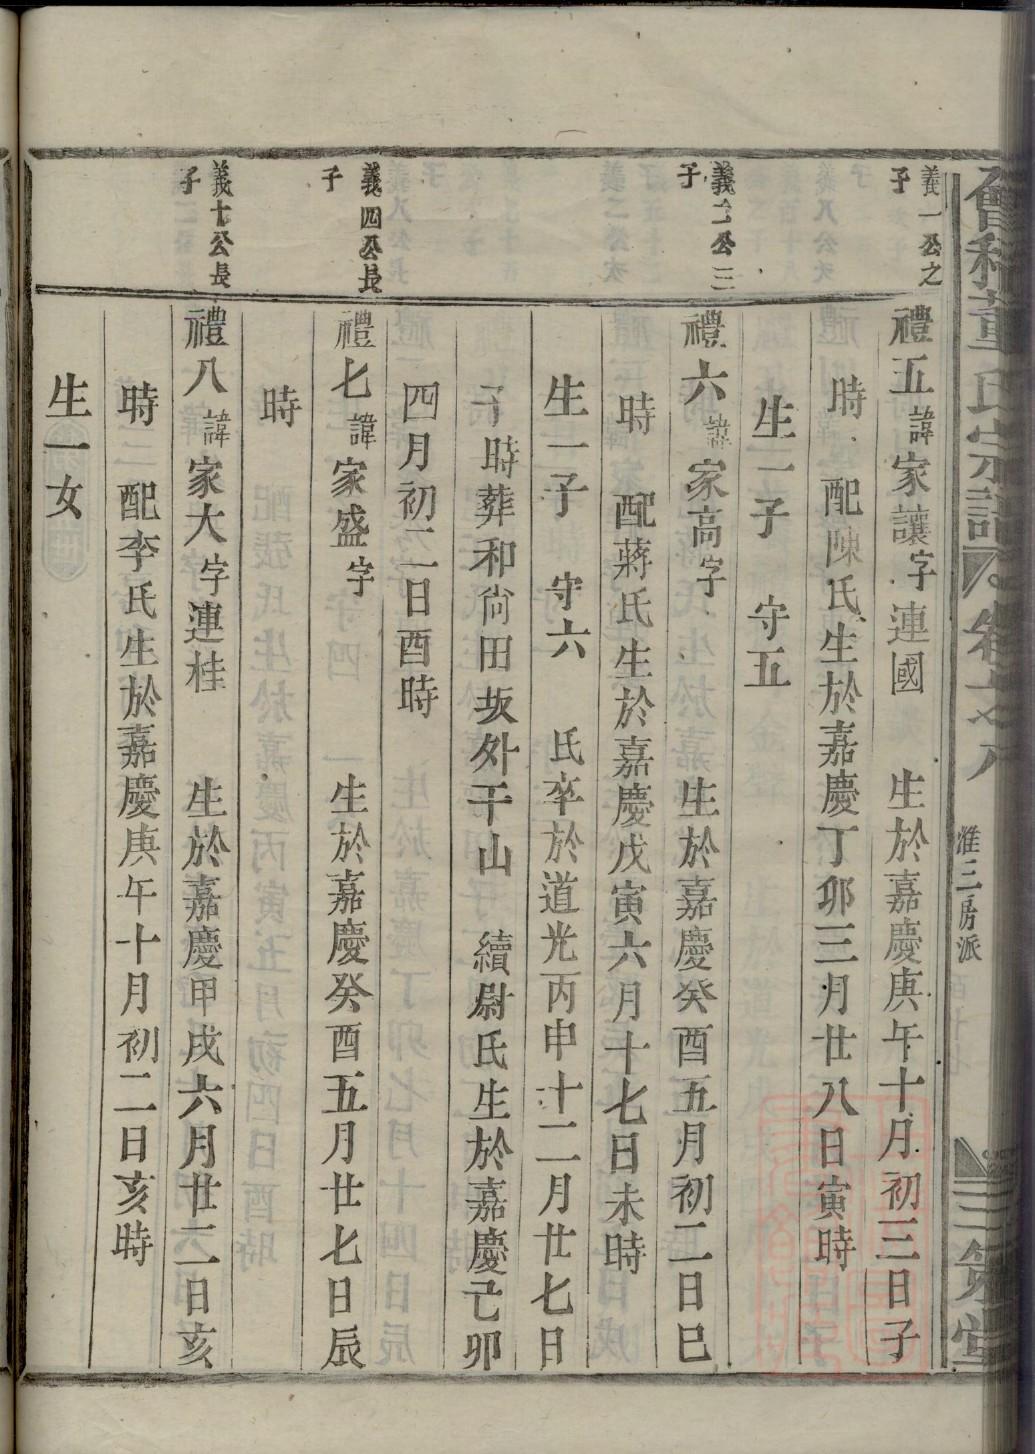 會稽董氏宗譜 卷之八 濰三房派 三策堂
義一公之子
禮五諱家讓字連國 生於嘉慶庚午十月初三日子
時配陳氏生於嘉慶丁卯三月廿八日寅時
生一子 守五
義二公三子
禮六諱家高字 生於嘉慶癸酉五月初二日巳
時 配蔣氏生於嘉慶戊寅六月十七日未時
生一子 守六 氏卒於道光丙申十二月廿七日
子時葬和尚田坂外干山 續尉氏生於嘉慶己卯
四月初二日酉時
義四公長子
禮七諱家盛字 生於嘉慶癸酉五月廿七日辰
時
義十公長子
禮八諱家大字連桂 生於嘉慶甲戌六月廿二日亥
時配李氏生於嘉慶庚午十月初二日亥時
生一女